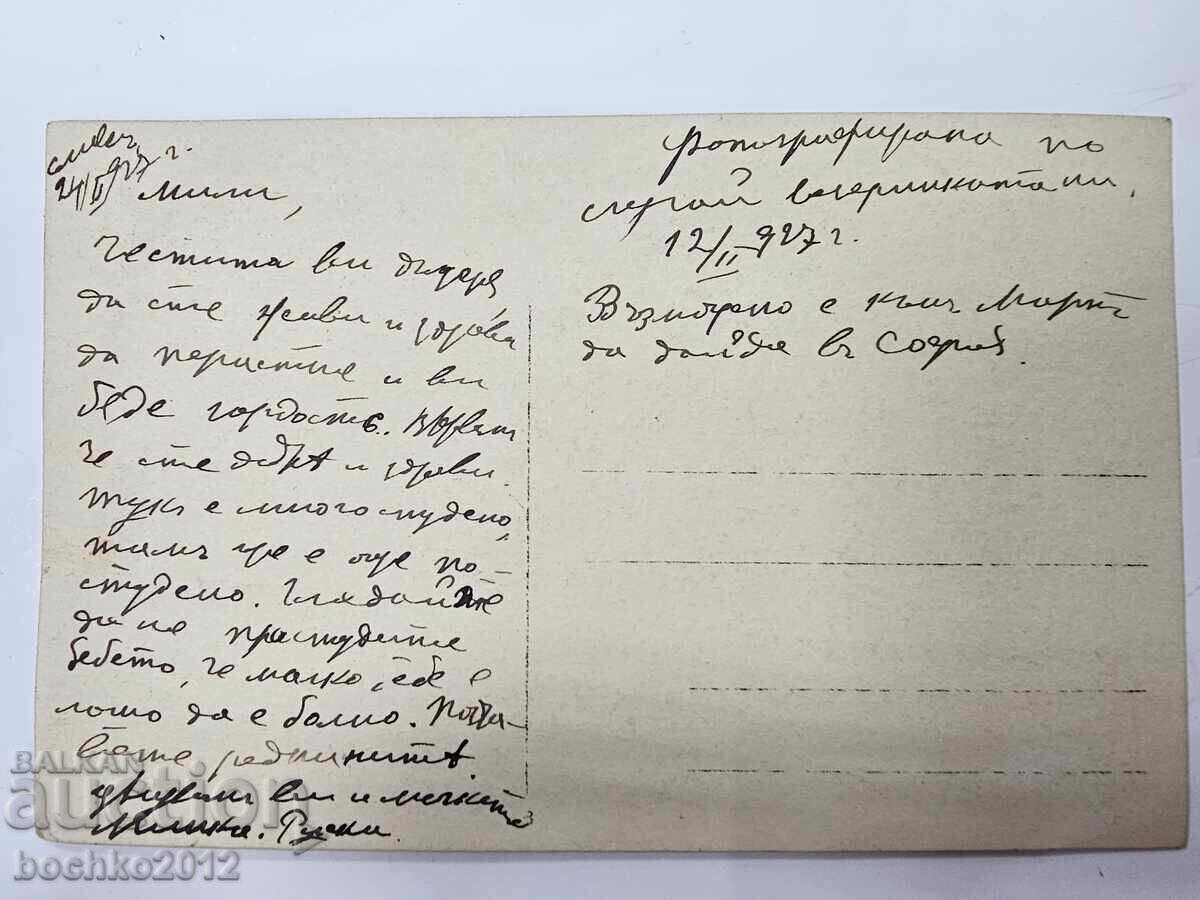 24/II 927 г.
Мили,
Честита ви дъщеря,
да сте живи и здрави
да порастне и ви
бъде гордость. Вярвам
че сте добрѣ и здрави.
Тукъ е много студено,
тамъ ще е още по-
студено. Гледайте
да не простудите
бебето, че малко, ще е
лошо да е болно. Поздра-
вете роднинитѣ.
Целувамъ ви и
Милика. Руски
Фотографирана по
случай вечеринката ни,
12/II 927 г.
Възможно е къмъ Мартъ
да дойда въ София.
BALKAN
auction
bochko2012